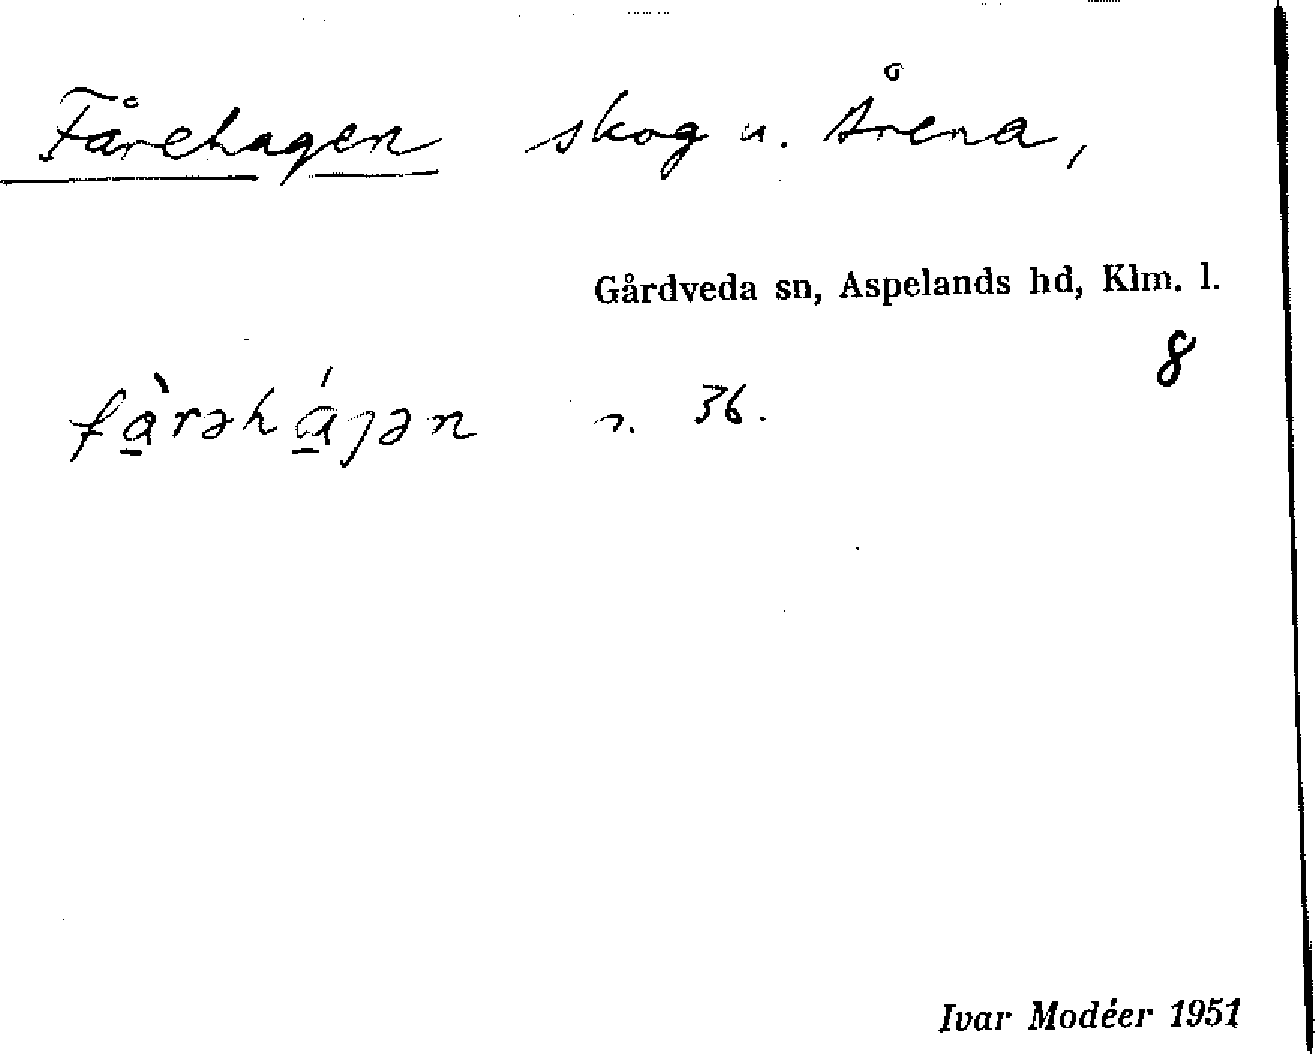 Fårehagen skog u. Årena,
Gårdveda sn, Aspelands hd, Klm. l.
8
fàrəháɟən n. 36.
Ivar Modéer 1951